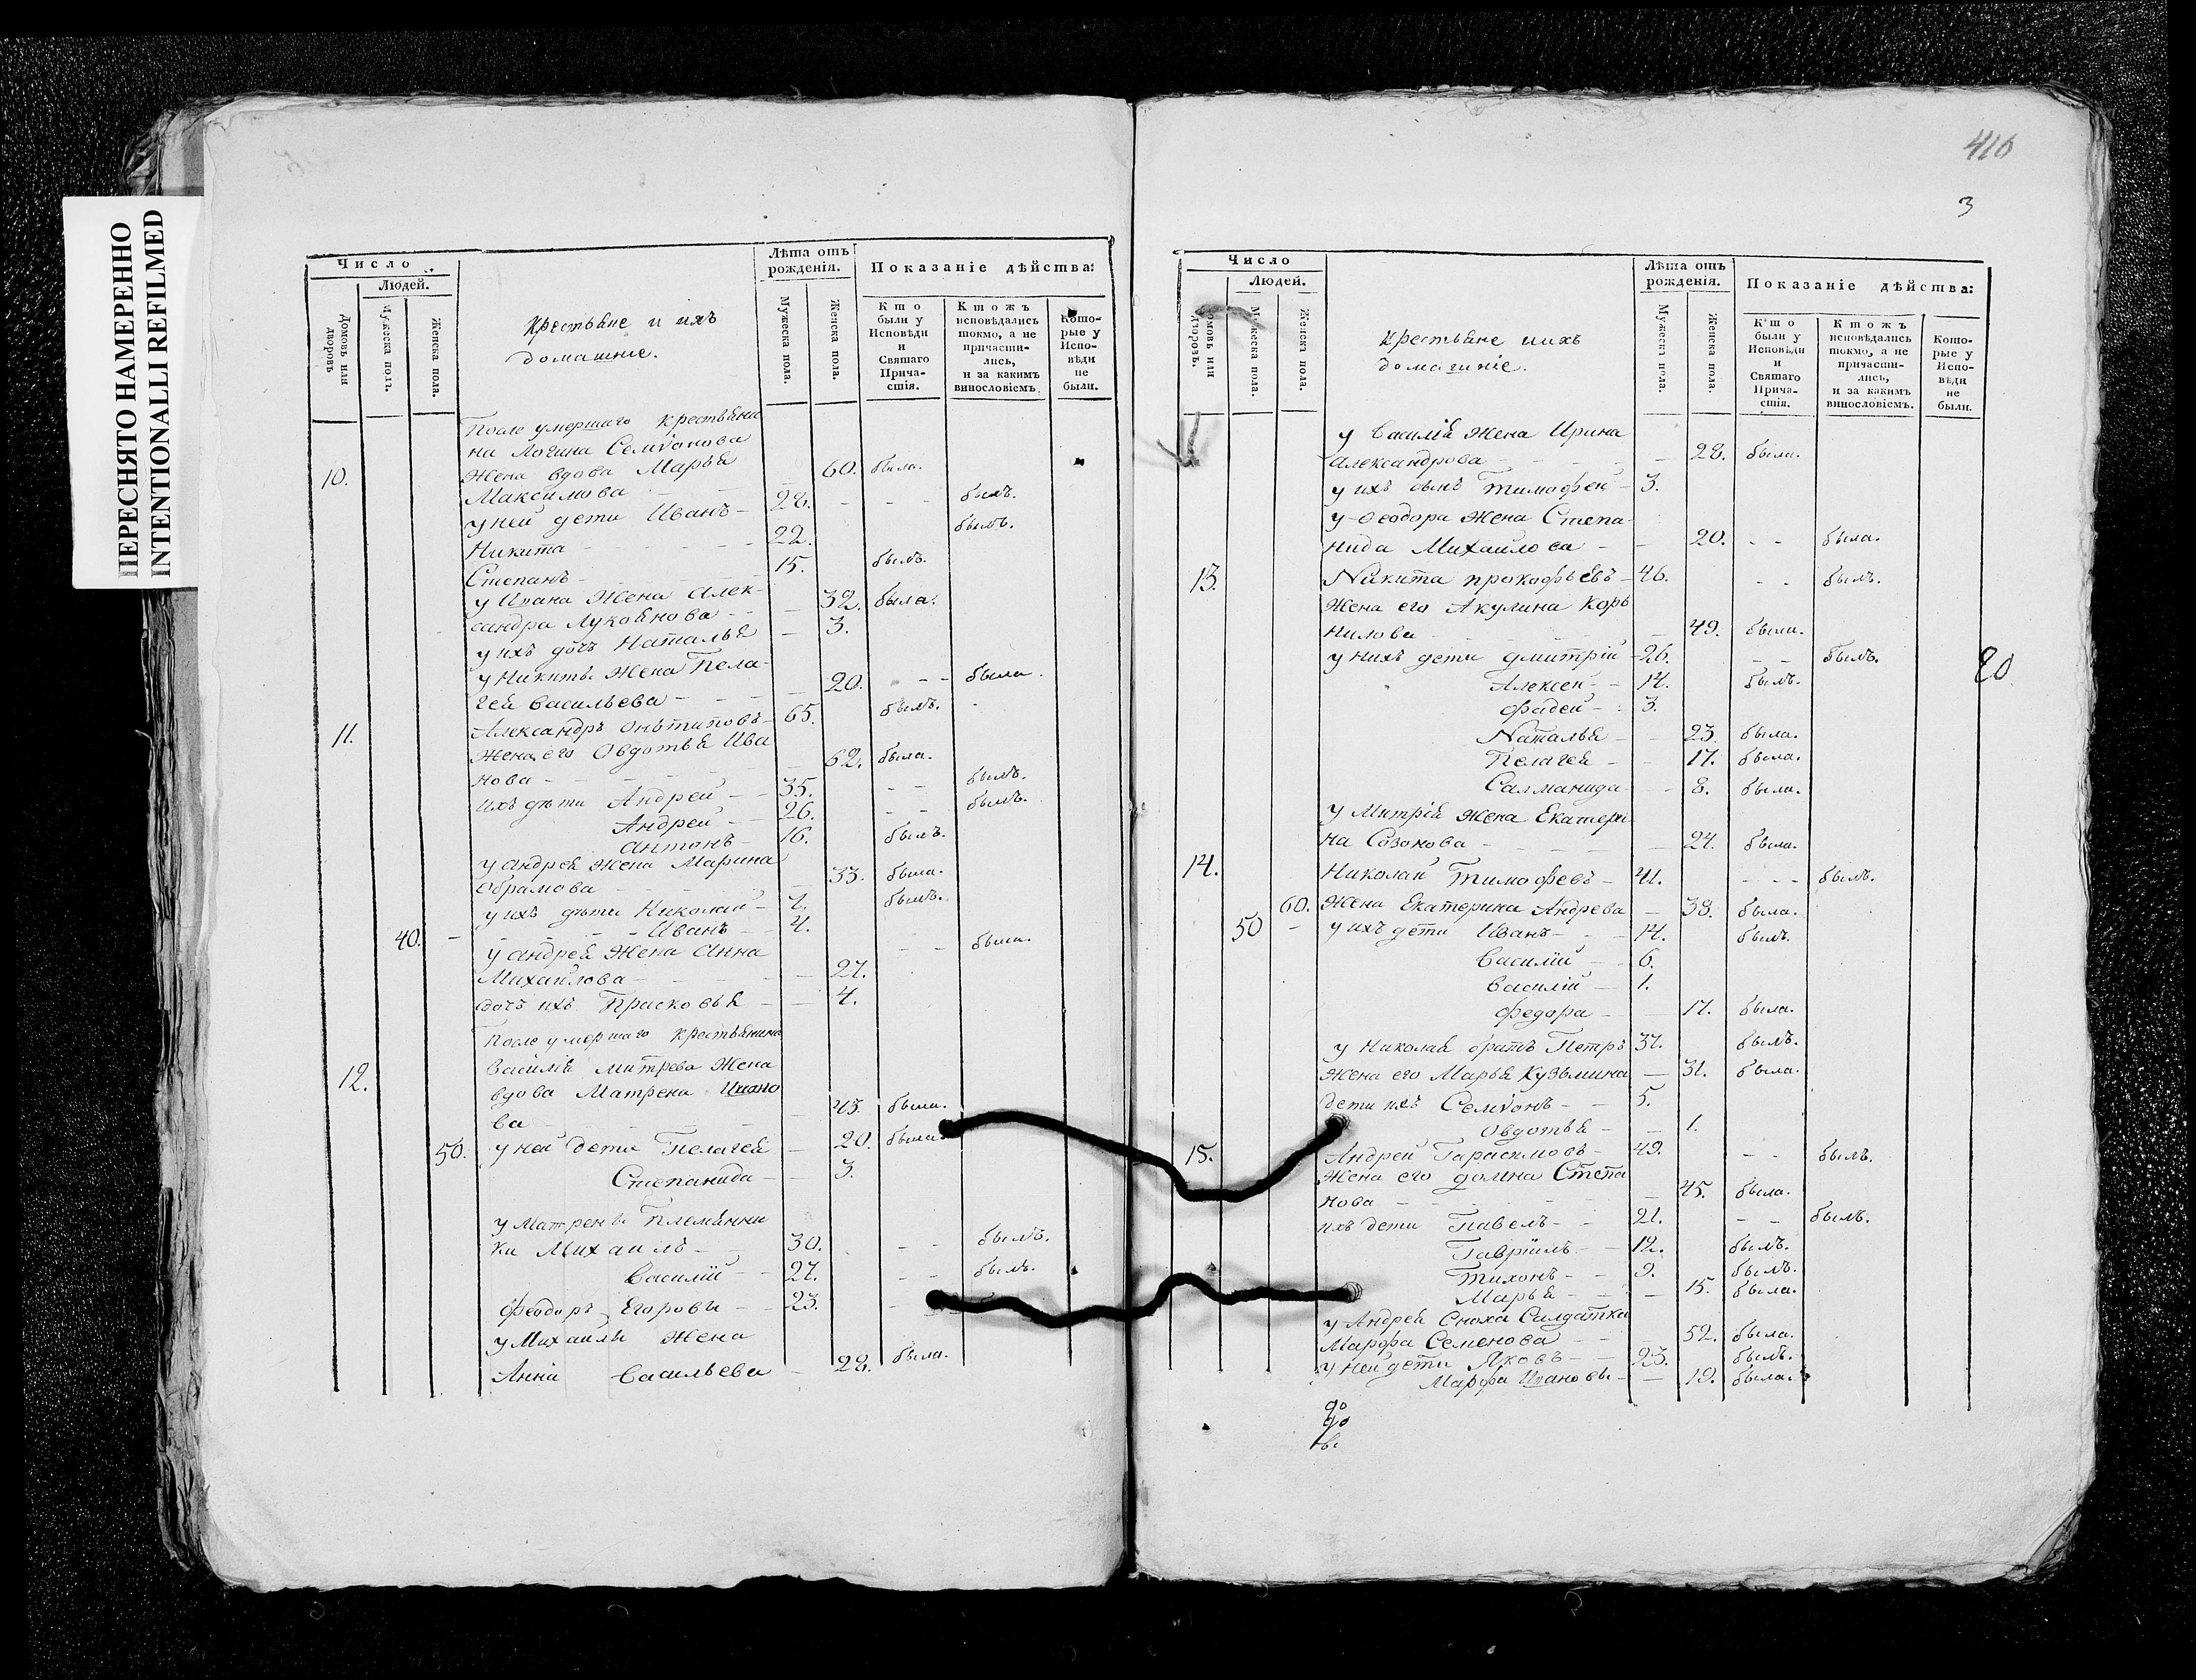 ПЕРЕСНЯТО НАМЕРЕННО
INTENTIONALLI REFILMED
Число
Людей.
Домовъ или дворовъ
Мужеска полъ.
Женска пола.
Крестьяне и ихъ
домашніе.
Лѣта отъ рожденія.
Мужеска пола.
Женска пола.
Показаніе дѣйства:
Кто были у Исповѣди и Святаго Причастія.
Ктожъ исповѣдались токмо, а не причастились, и за какимъ винословіемъ.
Которые у Исповѣди не были.
После умершаго крестьяни
на Логина Семіонова
10. Жена вдова Марья
Максимова 60. была.
у ней дети Иванъ 28. - - былъ.
Никита 22. былъ.
Степанъ 15. былъ.
у Ивана Жена Алек-
сандра Лукоянова 32. была.
у ихъ дочь Наталья 3.
у Никиты Жена Пела-
гея Васильева 20. - - была.
11. Александръ Онѣтиповъ 65. былъ.
Жена его Овдотья Ива
нова 62. была.
ихъ дѣти Андрей 35. - - былъ.
Андрей 26. - - былъ.
Антонъ 16. былъ.
у Андрея Жена Марина
Обрамова 33. была.
у ихъ дѣти Николай 7. былъ.
40. Иванъ 4.
у Андрея Жена Анна
Михайлова 27. - - была.
дочь ихъ Прасковья 4.
После умершаго Крестьянина
12. Василія Митрева Жена
вдова Матрена Ивано
ва 43. была.
50. у ней дети Пелагея 20. была.
Степанида 3.
у Матрены Племянни
ки Михаилъ 30. - - былъ.
Василій 27. - - былъ.
Феодоръ Егоровы 23.
у Михаилы Жена
Анна Васильева 28. была.
416
3
Число
Людей.
Домовъ или дворовъ.
Мужеска пола.
Женска пола.
Крестьяне и ихъ
домашніе.
Лѣта отъ рожденія.
Мужеска пола.
Женска пола.
Показаніе дѣйства:
Кто были у Исповѣди и Святаго Причастія.
Ктожъ исповѣдались токмо, а не причастились, и за какимъ винословіемъ.
Которые у Исповѣди не были.
у Василія Жена Ирина
Александрова 28. была.
у ихъ сынъ Тимофей 3.
у Феодора Жена Степа-
нида Михайлова 20. - - была.
13. Никита Прокофьевъ 46. - - былъ.
Жена его Акулина Корь
нилова 49. была.
у нихъ дети Дмитрій 26. - - былъ.
20
Алексей 14. былъ.
Фадей 3.
Наталья 23. была.
Пелагея 17. была.
Салманида 8. была.
у Митрія Жена Екатери
на Созонова 24. была.
14. Николай Тимофевъ 41. - - - былъ.
60. Жена Екатерина Андрева 38. была.
50 - у ихъ дети Иванъ 14. былъ.
Василій 6.
Василій 1.
Федора 17. была.
у Николая братъ Петръ 37. былъ.
Жена его Марья Кузьмина 31. была.
дети ихъ Семіонъ 5.
Овдотья 1.
15. Андрей Гарасимовъ 49. - - былъ.
Жена его Домна Степа
нова 45. была.
ихъ дети Павелъ 21. - - былъ.
Гавріилъ 12. былъ.
Тихонъ 9. былъ.
Марья 15. была.
у Андрея Сноха Салдатка
Марфа Семенова 52. была.
у ней дети Яковъ 23. былъ.
Марфа Ивановы 19. была.
до
до